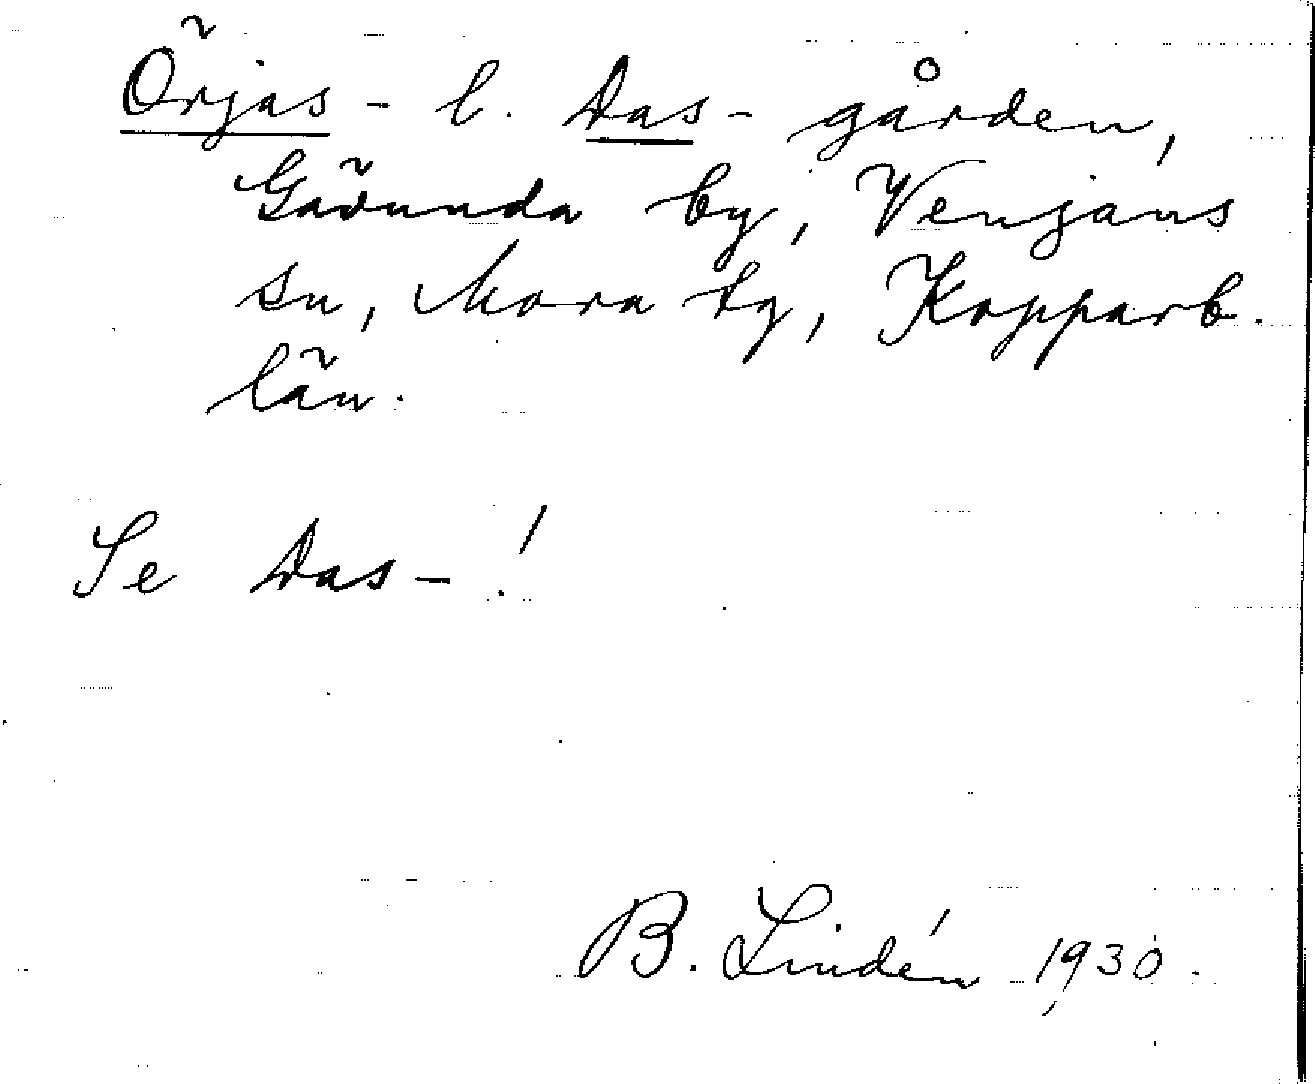 Örjas- l. Das- gården,
Gävunda by, Venjans
sn, Mora tg, Kopparb.
län.
Se Das-!
B. Lindén 1930.